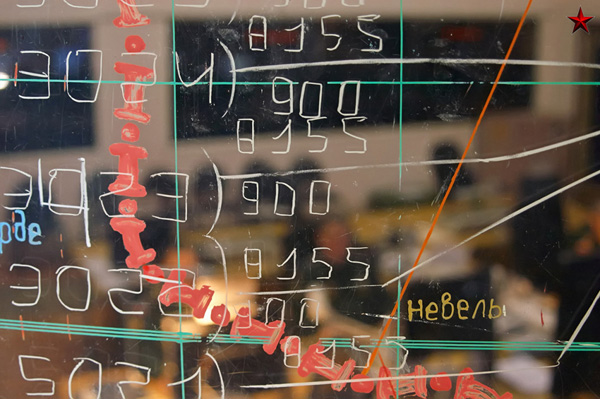 8155
3024) 900
8155
3023) 900
рде
8155
3022) 900
Невель
8155
5021)